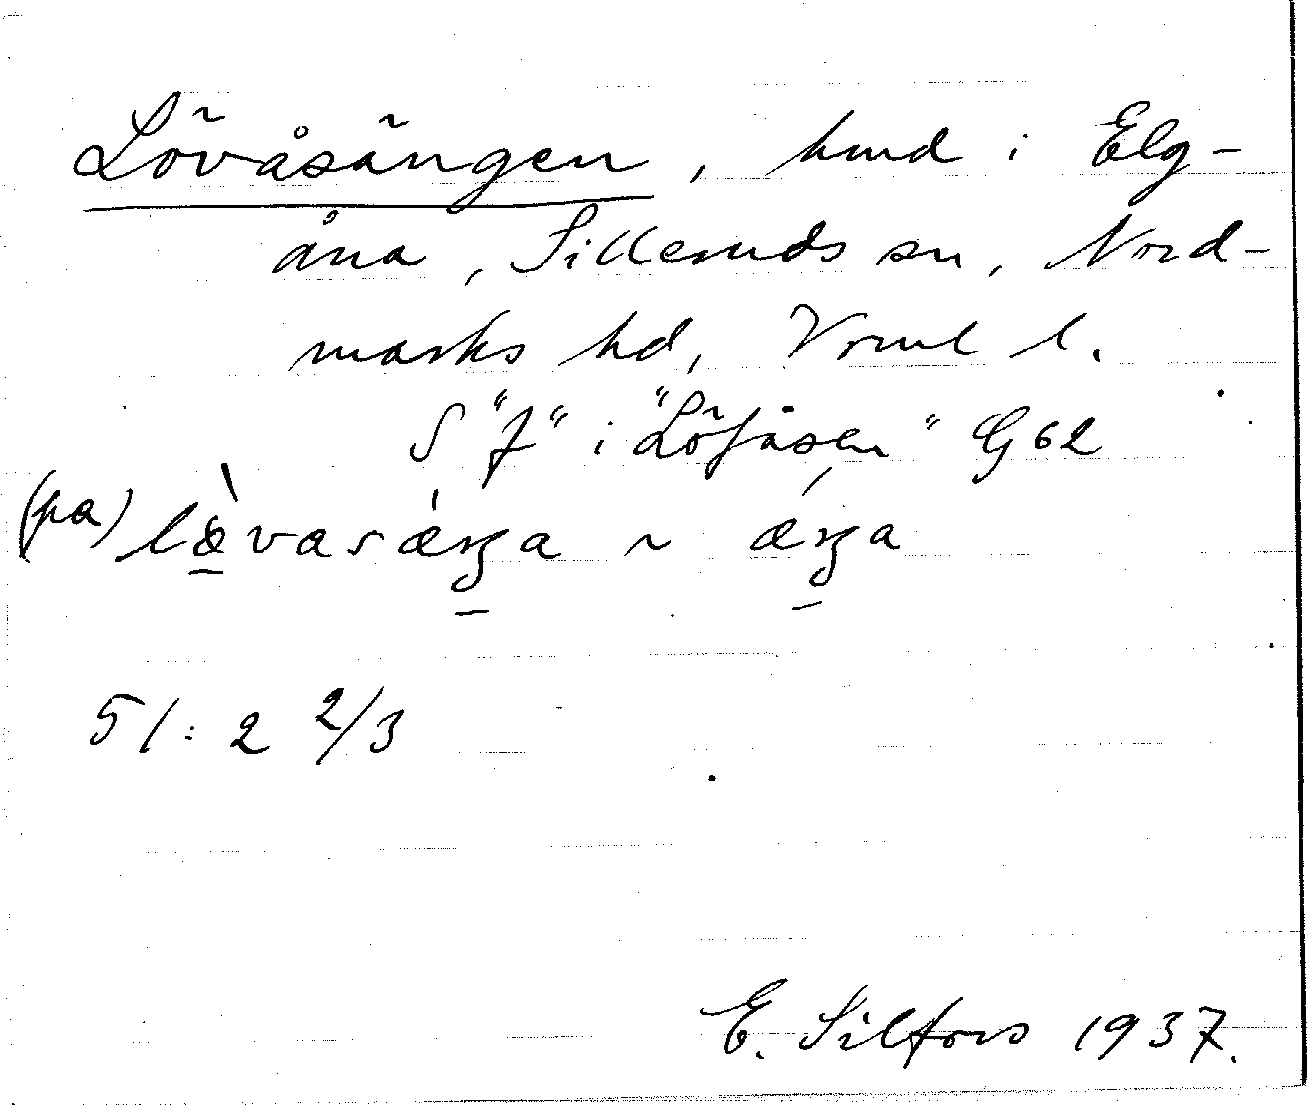 Lövåsängen, hmd i Elg-
åna, Silleruds sn, Nord-
marks hd, Vrml l.
S "f" i "Löfåsen" G62
(pa) lævasæŋa ~ æŋa
51:2 2/3
E. Silfors 1937.